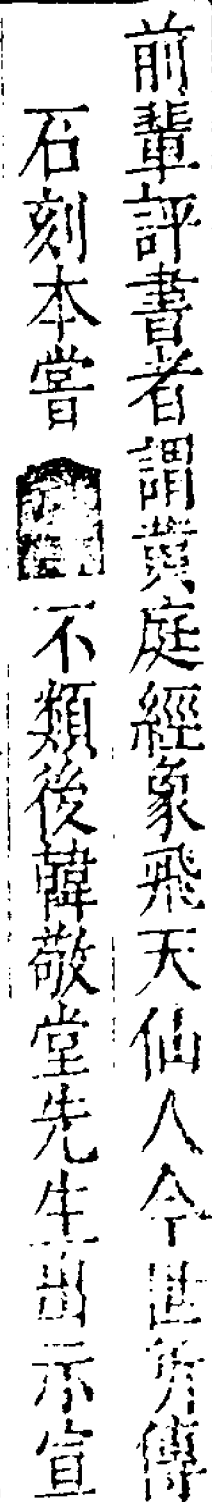 前輩評書者謂黃庭經象飛天仙人今世所傳
石刻本嘗不類後韓敬堂先生出示宣